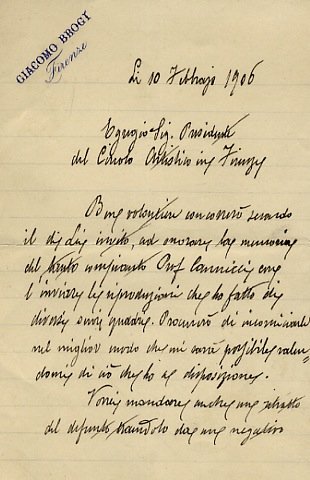 GIACOMO BROGI
Firenze
Li 10 Febbrajo 1906
Egregio Sig. Presidente
del Circolo Artistico in Firenze
Ben volentieri concorrerò secondo
il di Lei invito, ad onorare la memoria
del tanto compianto Prof. Cannicci con
l'inviare le riproduzioni che ho fatto di
diversi suoi quadri. Procurerò di incorniciarle
nel miglior modo che mi sarà possibile valen-
domi di ciò che ho a disposizione.
Vorrei mandare anche un ritratto
del defunto traendolo da una negativa